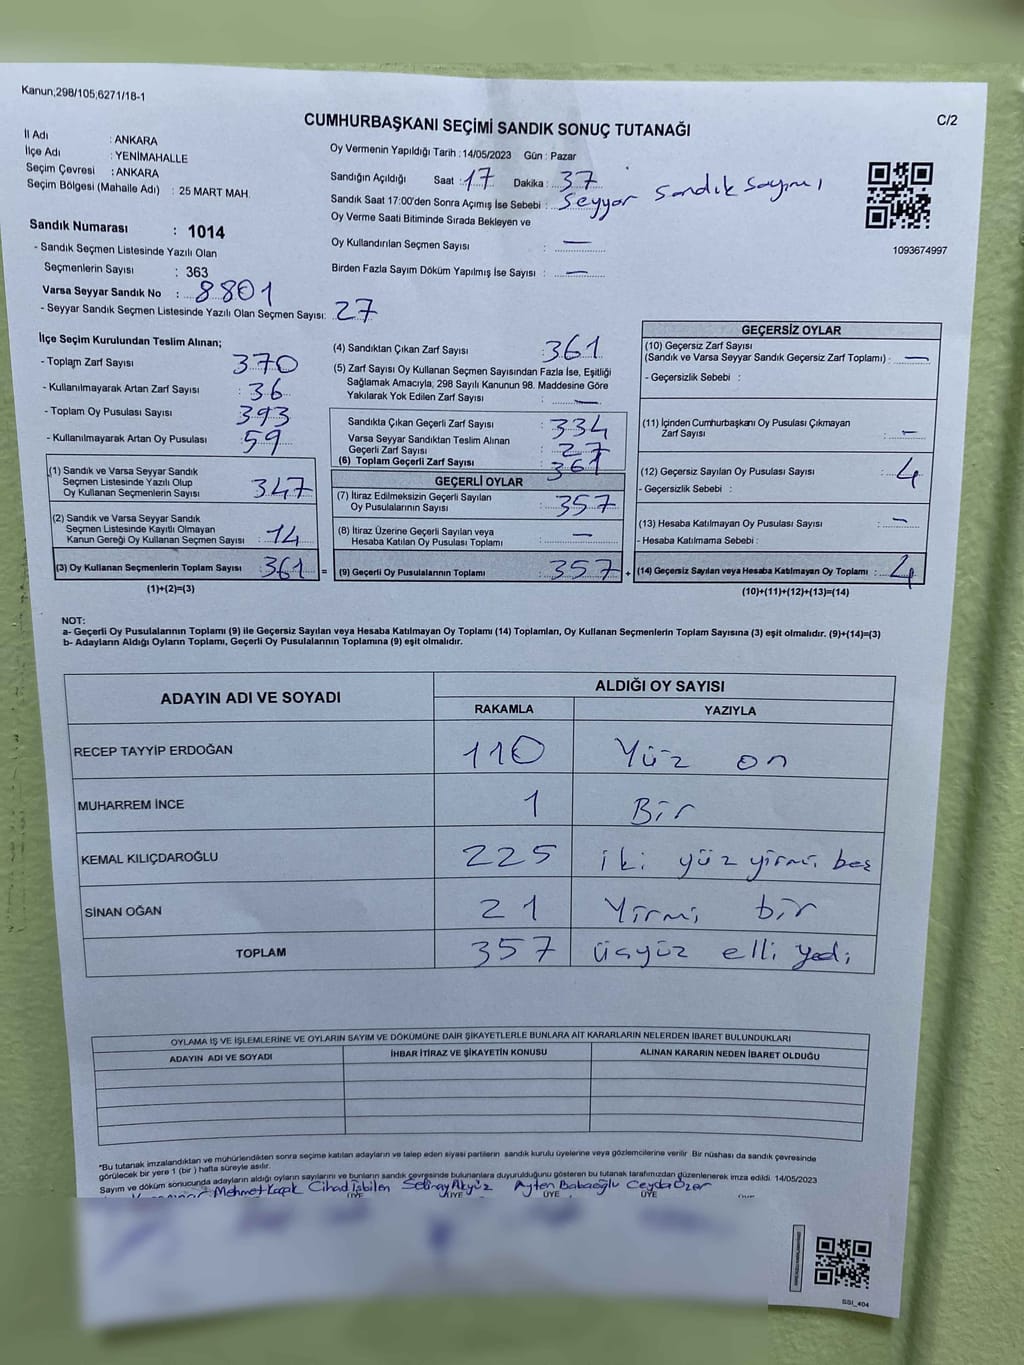 Kanun;298/105;6271/18-1
C/2
CUMHURBAŞKANI SEÇİMİ SANDIK SONUÇ TUTANAĞI
İl Adı : ANKARA
İlçe Adı : YENİMAHALLE
Seçim Çevresi : ANKARA
Seçim Bölgesi (Mahalle Adı) : 25 MART MAH.
Sandık Numarası : 1014
- Sandık Seçmen Listesinde Yazılı Olan
Seçmenlerin Sayısı : 363
Varsa Seyyar Sandık No : 8801
- Seyyar Sandık Seçmen Listesinde Yazılı Olan Seçmen Sayısı: 27
Oy Vermenin Yapıldığı Tarih : 14/05/2023 Gün : Pazar
Sandığın Açıldığı Saat : 17 Dakika : 37
Sandık Saat 17:00'den Sonra Açımış İse Sebebi : Seyyar Sandık Sayımı
Oy Verme Saati Bitiminde Sırada Bekleyen ve
Oy Kullandırılan Seçmen Sayısı : —
Birden Fazla Sayım Döküm Yapılmış İse Sayısı : —
1093674997
İlçe Seçim Kurulundan Teslim Alınan;
- Toplam Zarf Sayısı : 370
- Kullanılmayarak Artan Zarf Sayısı : 36
- Toplam Oy Pusulası Sayısı : 393
- Kullanılmayarak Artan Oy Pusulası : 59
(1) Sandık ve Varsa Seyyar Sandık
Seçmen Listesinde Yazılı Olup
Oy Kullanan Seçmenlerin Sayısı : 347
(2) Sandık ve Varsa Seyyar Sandık
Seçmen Listesinde Kayıtlı Olmayan
Kanun Gereği Oy Kullanan Seçmen Sayısı : 14
(3) Oy Kullanan Seçmenlerin Toplam Sayısı : 361 =
(1)+(2)=(3)
(4) Sandıktan Çıkan Zarf Sayısı : 361
(5) Zarf Sayısı Oy Kullanan Seçmen Sayısından Fazla İse, Eşitliği
Sağlamak Amacıyla, 298 Sayılı Kanunun 98. Maddesine Göre
Yakılarak Yok Edilen Zarf Sayısı : —
Sandıkta Çıkan Geçerli Zarf Sayısı : 334
Varsa Seyyar Sandıktan Teslim Alınan
Geçerli Zarf Sayısı : 27
(6) Toplam Geçerli Zarf Sayısı : 361
GEÇERLİ OYLAR
(7) İtiraz Edilmeksizin Geçerli Sayılan
Oy Pusulalarının Sayısı : 357
(8) İtiraz Üzerine Geçerli Sayılan veya
Hesaba Katılan Oy Pusulası Toplamı : —
(9) Geçerli Oy Pusulalarının Toplamı : 357 +
GEÇERSİZ OYLAR
(10) Geçersiz Zarf Sayısı
(Sandık ve Varsa Seyyar Sandık Geçersiz Zarf Toplamı) : —
- Geçersizlik Sebebi :
(11) İçinden Cumhurbaşkanı Oy Pusulası Çıkmayan
Zarf Sayısı : —
(12) Geçersiz Sayılan Oy Pusulası Sayısı : 4
- Geçersizlik Sebebi :
(13) Hesaba Katılmayan Oy Pusulası Sayısı : —
- Hesaba Katılmama Sebebi :
(14) Geçersiz Sayılan veya Hesaba Katılmayan Oy Toplamı : 4
(10)+(11)+(12)+(13)=(14)
NOT:
a- Geçerli Oy Pusulalarının Toplamı (9) ile Geçersiz Sayılan veya Hesaba Katılmayan Oy Toplamı (14) Toplamları, Oy Kullanan Seçmenlerin Toplam Sayısına (3) eşit olmalıdır. (9)+(14)=(3)
b- Adayların Aldığı Oyların Toplamı, Geçerli Oy Pusulalarının Toplamına (9) eşit olmalıdır.
ADAYIN ADI VE SOYADI
ALDIĞI OY SAYISI
RAKAMLA YAZIYLA
RECEP TAYYİP ERDOĞAN 110 Yüz on
MUHARREM İNCE 1 Bir
KEMAL KILIÇDAROĞLU 225 iki yüz yirmi beş
SİNAN OĞAN 21 Yirmi bir
TOPLAM 357 üçyüz elli yedi
OYLAMA İŞ VE İŞLEMLERİNE VE OYLARIN SAYIM VE DÖKÜMÜNE DAİR ŞİKAYETLERLE BUNLARA AİT KARARLARIN NELERDEN İBARET BULUNDUKLARI
ADAYIN ADI VE SOYADI İHBAR İTİRAZ VE ŞİKAYETİN KONUSU ALINAN KARARIN NEDEN İBARET OLDUĞU
*Bu tutanak imzalandıktan ve mühürlendikten sonra seçime katılan adayların ve talep eden siyasi partilerin sandık kurulu üyelerine veya gözlemcilerine verilir. Bir nüshası da sandık çevresinde
görülecek bir yere 1 (bir) hafta süreyle asılır.
Sayım ve döküm sonucunda adayların aldığı oyların sayılarını ve bunların sandık çevresinde bulunanlara duyurulduğunu gösteren bu tutanak tarafımızdan düzenlenerek imza edildi. 14/05/2023
Mehmet Kapık Cihad İşbilen Selinay Akyüz Ayten Babaoğlu Ceyda Özer
ÜYE ÜYE ÜYE ÜYE
SSI_404